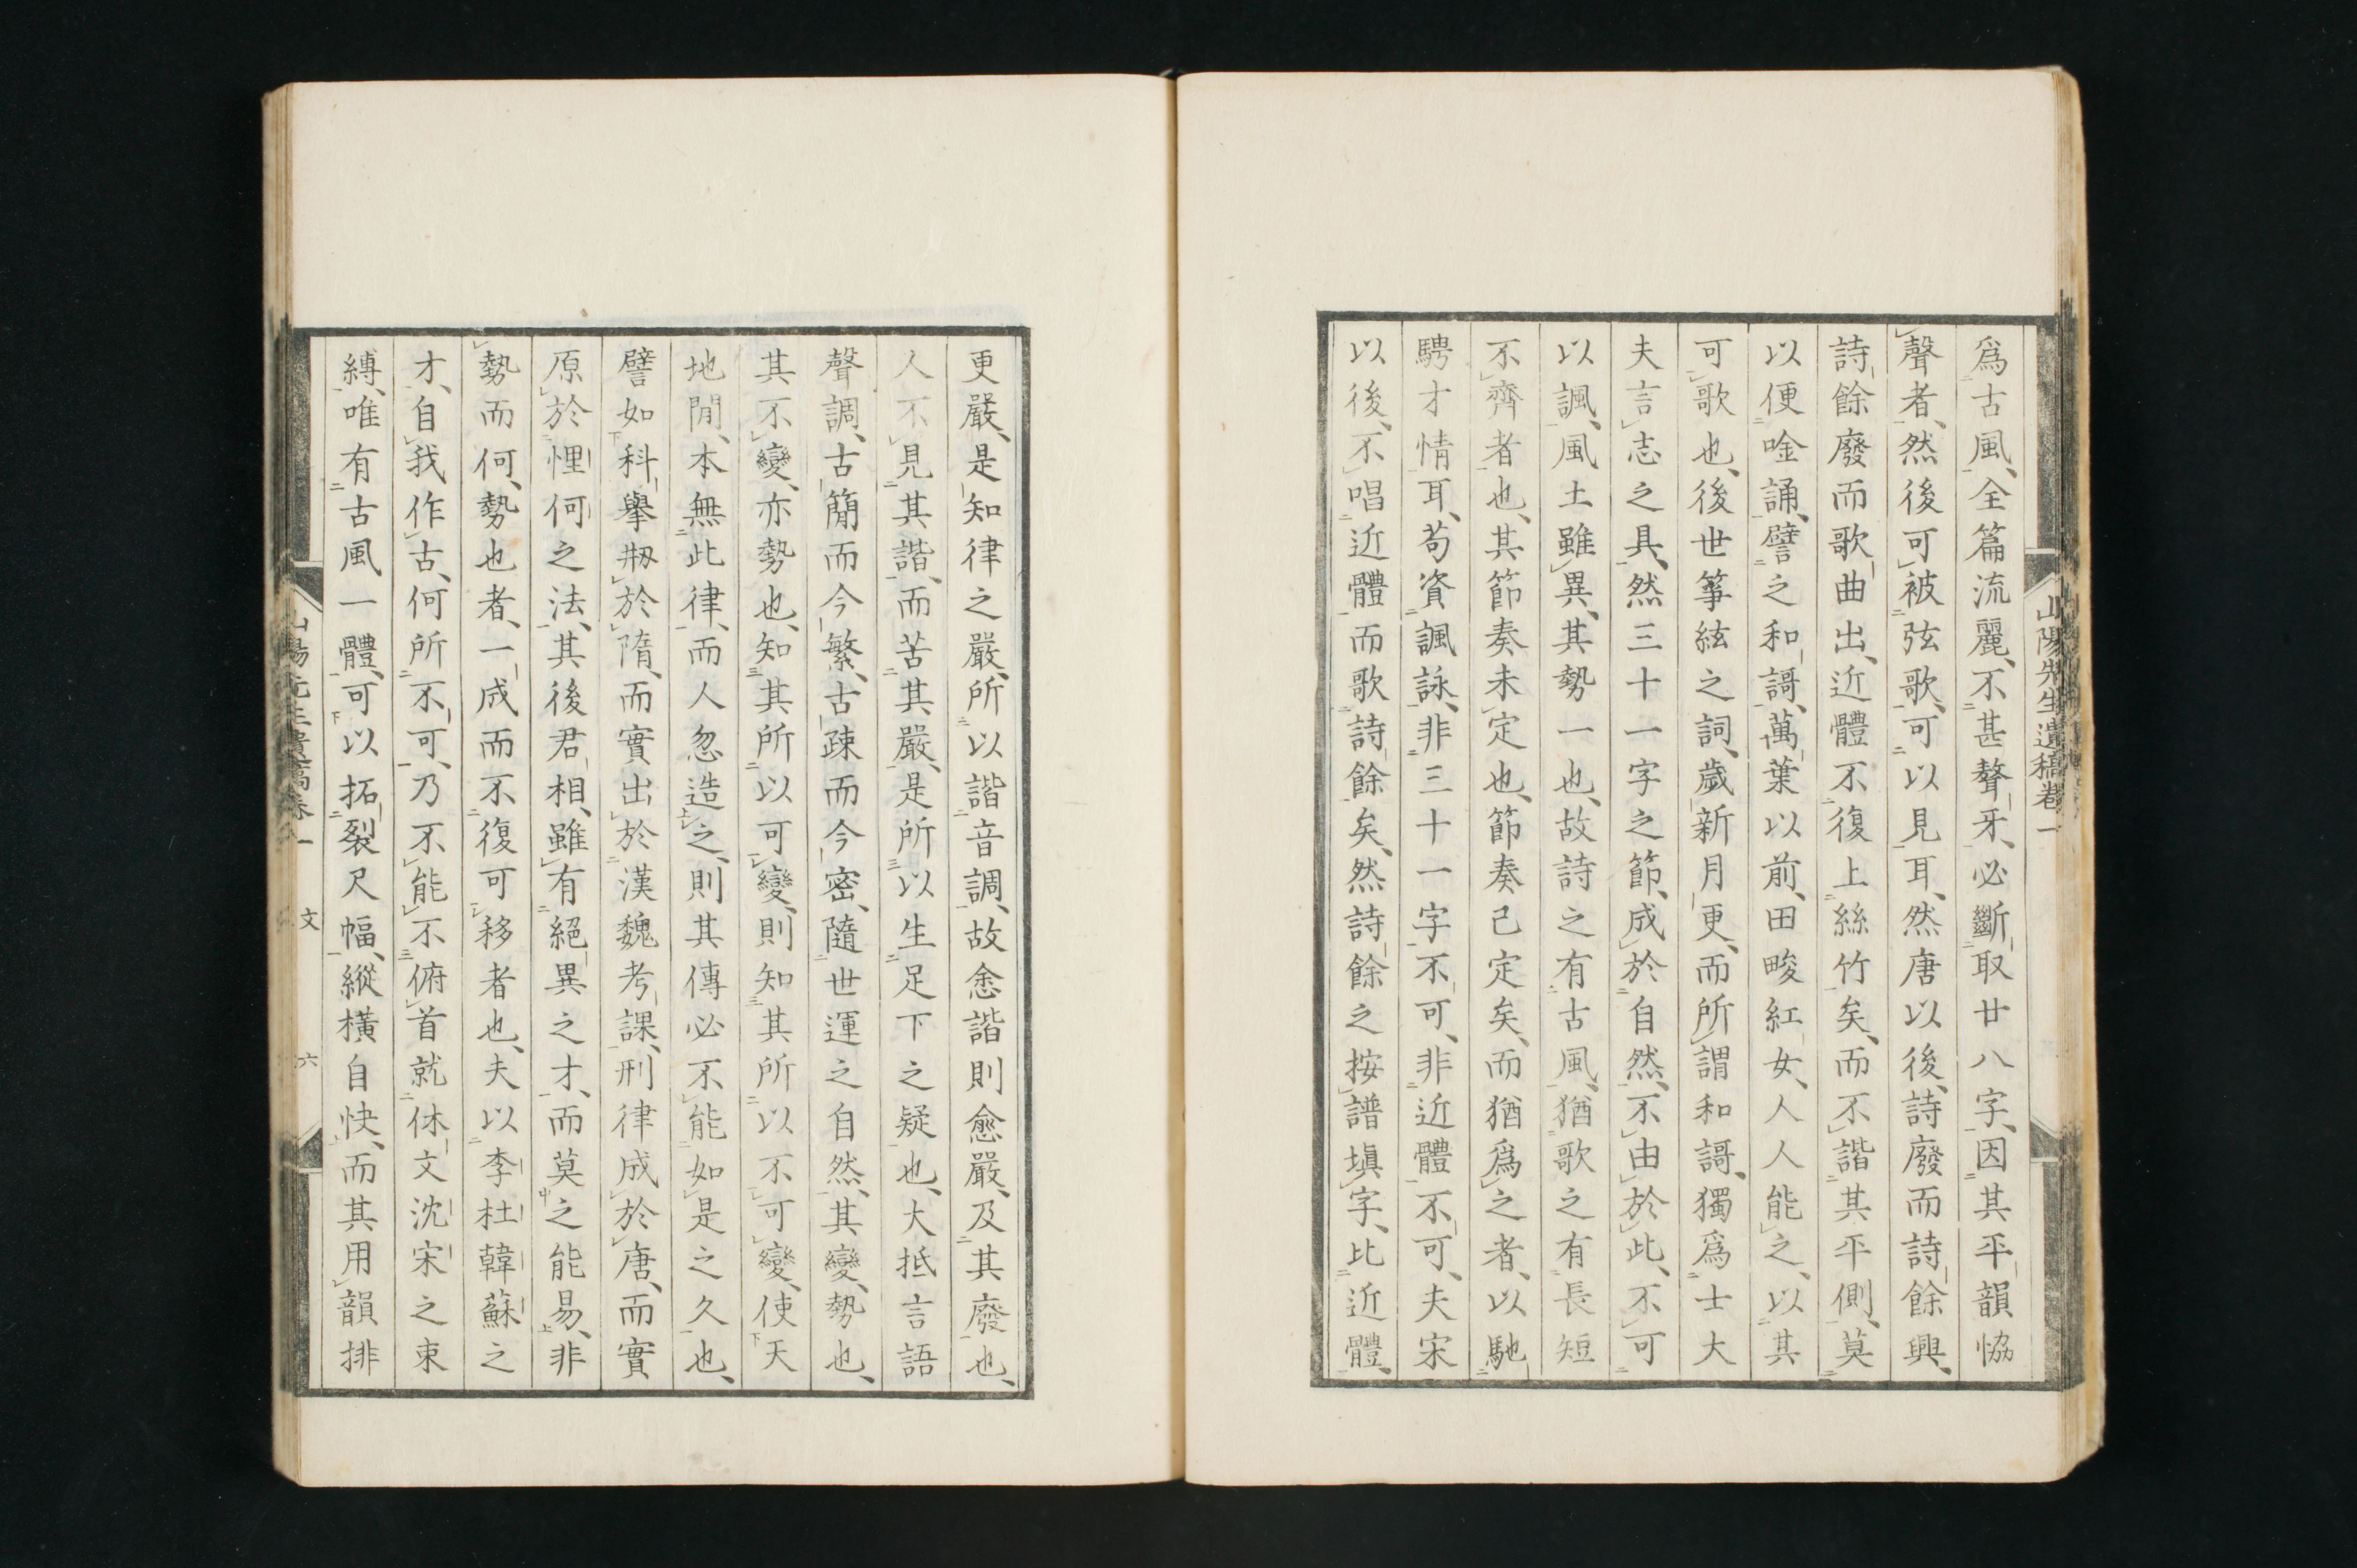 山陽先生遺稿卷一
爲古風、全篇流麗、不甚聱牙、必斷取廿八字、因其平韻恊
聲者、然後可被弦歌、可以見耳、然唐以後、詩廢而詩餘興、
詩餘廢而歌曲出、近體不復上絲竹矣、而不諧其平側、莫
以便唫誦、譬之和謌、萬葉以前、田畯紅女、人人能之、以其
可歌也、後世箏絃之詞、歲新月更、而所謂和謌、獨爲士大
夫言志之具、然三十一字之節、成於自然、不由於此、不可
以諷、風土雖異、其勢一也、故詩之有古風、猶歌之有長短
不齊者也、其節奏未定也、節奏已定矣、而猶爲之者、以馳
騁才情耳、苟資諷詠、非三十一字不可、非近體不可、夫宋
以後、不唱近體而歌詩餘矣、然詩餘之按譜塡字、比近體、
更嚴、是知律之嚴、所以諧音調、故愈諧則愈嚴、及其廢也、
人不見其諧、而苦其嚴、是所以生足下之疑也、大抵言語
聲調、古簡而今繁、古疎而今密、隨世運之自然、其變、勢也、
其不變、亦勢也、知其所以可變、則知其所以不可變、使天
地閒、本無此律、而人忽造之、則其傳必不能如是之久也、
譬如科擧刱於隋、而實出於漢魏考課、刑律成於唐、而實
原於悝何之法、其後君相、雖有絕異之才、而莫之能易、非
勢而何、勢也者、一成而不復可移者也、夫以李杜韓蘇之
才、自我作古、何所不可、乃不能不俯首就休文沈宋之束
縛、唯有古風一體、可以拓裂尺幅、縱橫自快、而其用韻排
山陽先生遺稿卷一　文　六